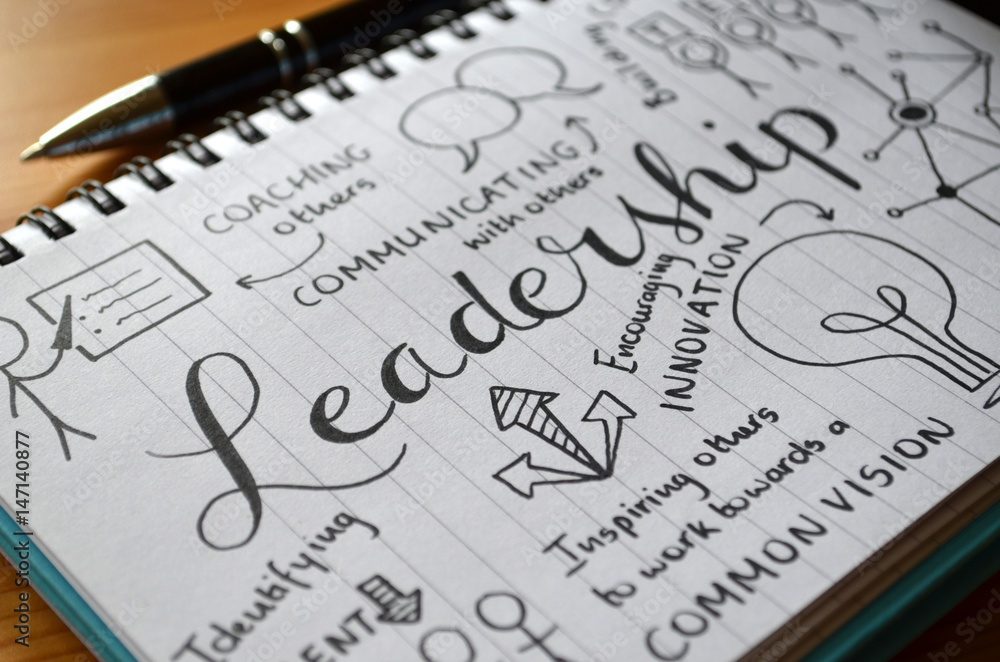 COACHING
others
COMMUNICATING
with others
Building
Leadership
Encouraging
INNOVATION
Inspiring others
to work towards a
COMMON VISION
Identifying
Adobe Stock | #147140877